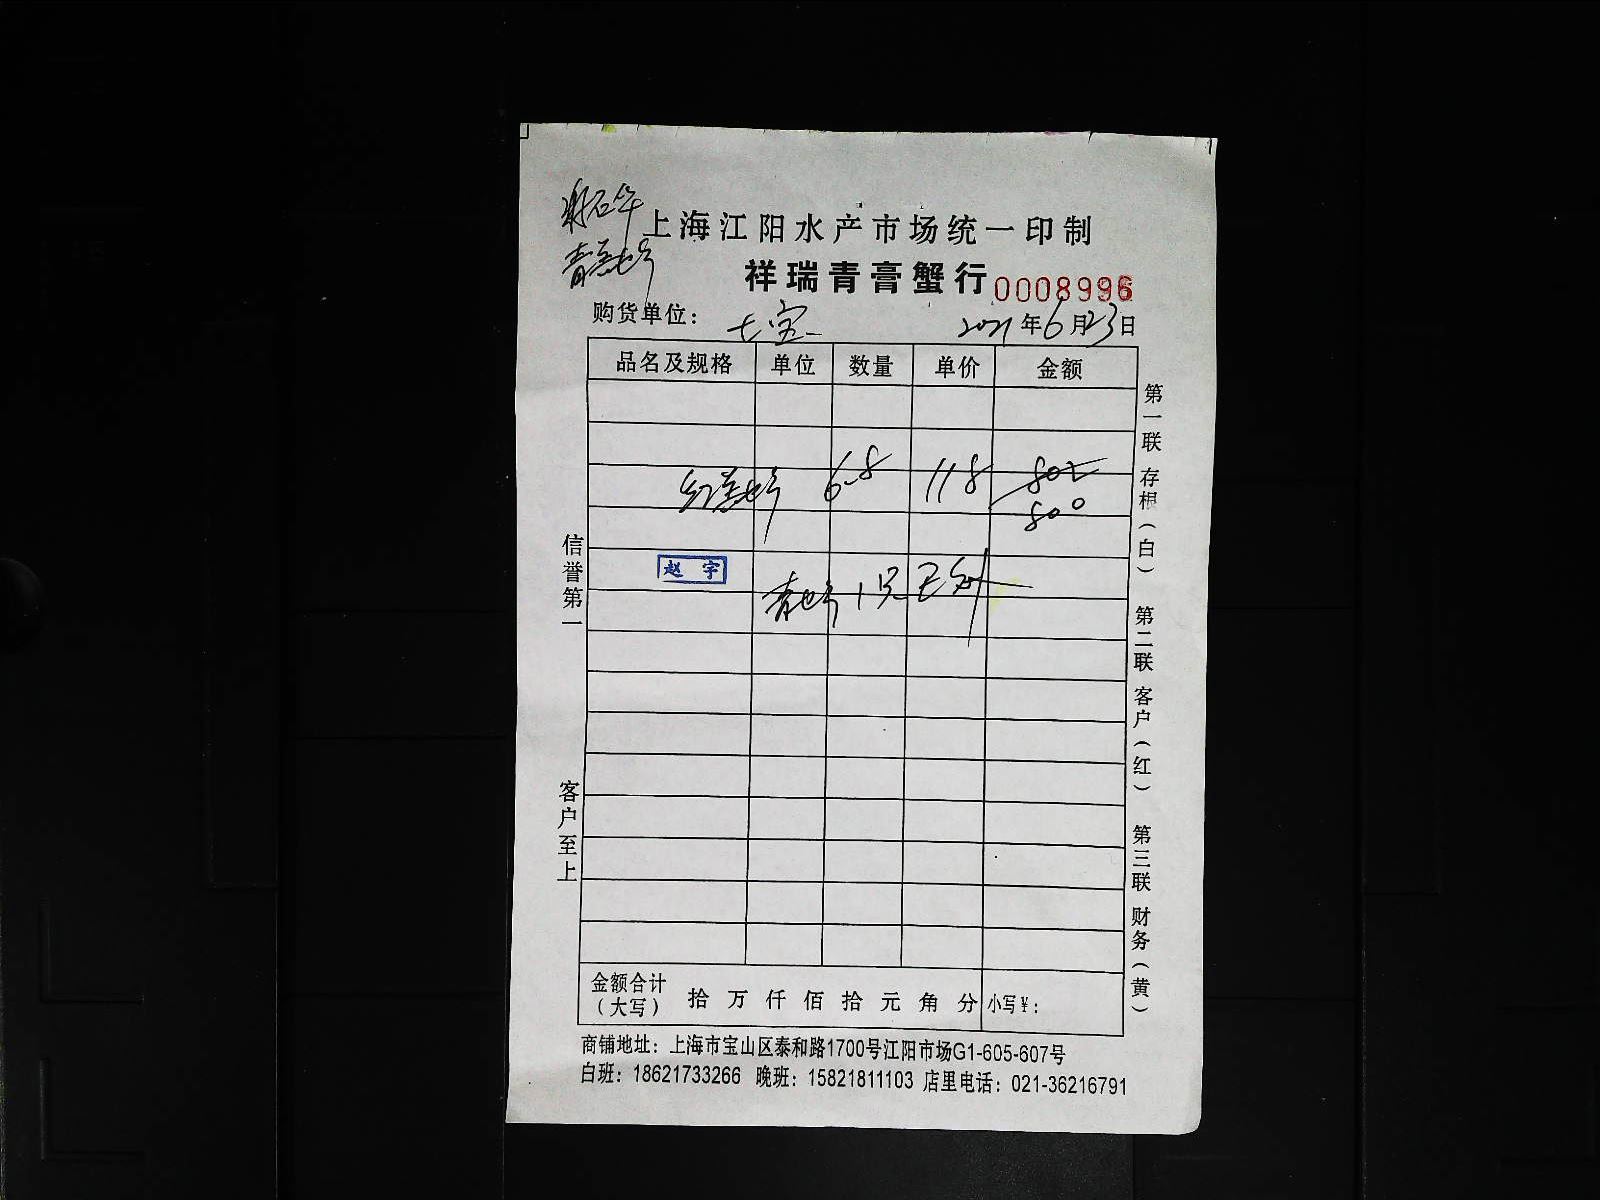 上海江阳水产市场统一印制
祥瑞青膏蟹行 0008996
购货单位： 七宝 2021年6月23日
品名及规格 单位 数量 单价 金额
红膏 6.8 118 802
800
赵宇
青 1只已
金额合计
（大写） 拾万仟佰拾元角分 小写¥：
商铺地址：上海市宝山区泰和路1700号江阳市场G1-605-607号
白班：18621733266 晚班：15821811103 店里电话：021-36216791
信誉第一
客户至上
第一联 存根（白） 第二联 客户（红） 第三联 财务（黄）